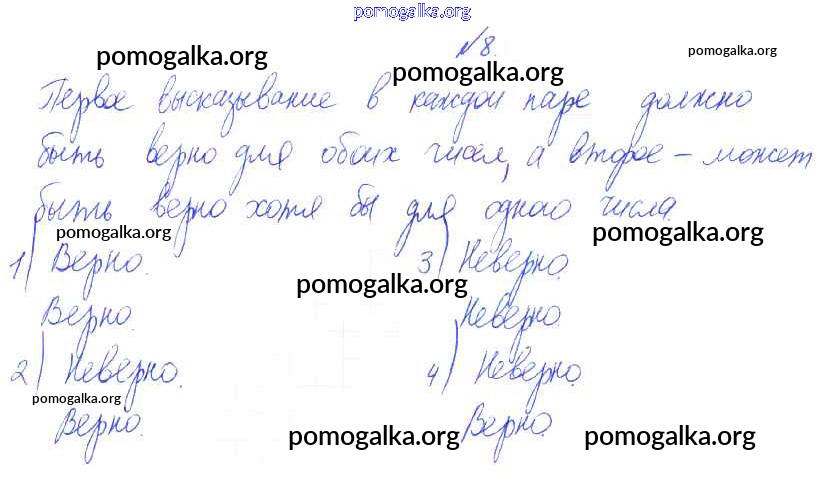 pomogalka.org
№8.
pomogalka.org pomogalka.org pomogalka.org
Первое высказывание в каждой паре должно
быть верно для обоих чисел, а второе – может
быть верно хотя бы для одного числа.
pomogalka.org pomogalka.org
1) Верно. 3) Неверно.
pomogalka.org
Верно. Неверно.
2) Неверно. 4) Неверно.
pomogalka.org
Верно. Верно.
pomogalka.org pomogalka.org